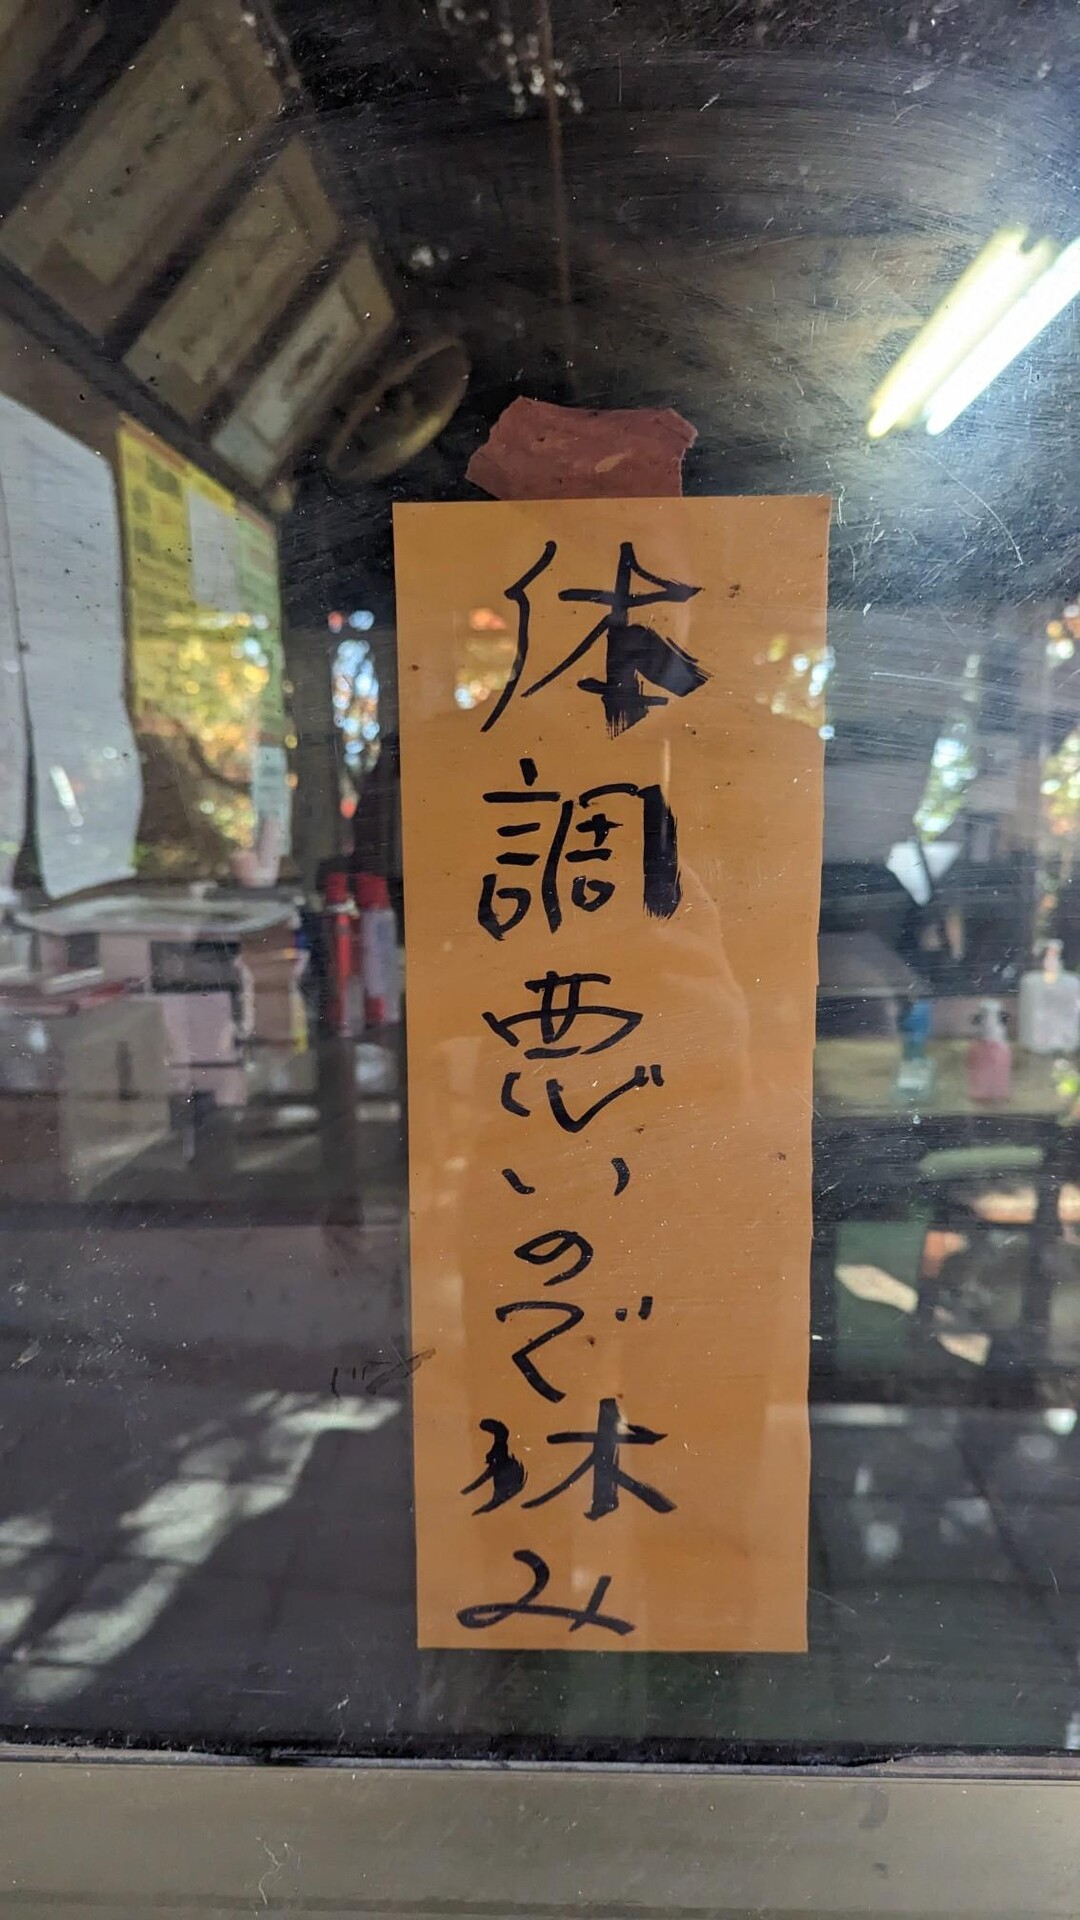 体調悪いので休み